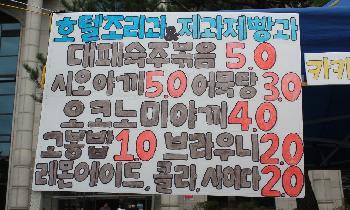 호텔조리과&제과제빵과
대패숙주볶음 5.0
서오야끼 5.0 어묵탕 3.0
오코노미야끼 4.0
고봉밥 1.0 브라우니 2.0
레몬에이드, 콜라, 사이다 2.0
카키